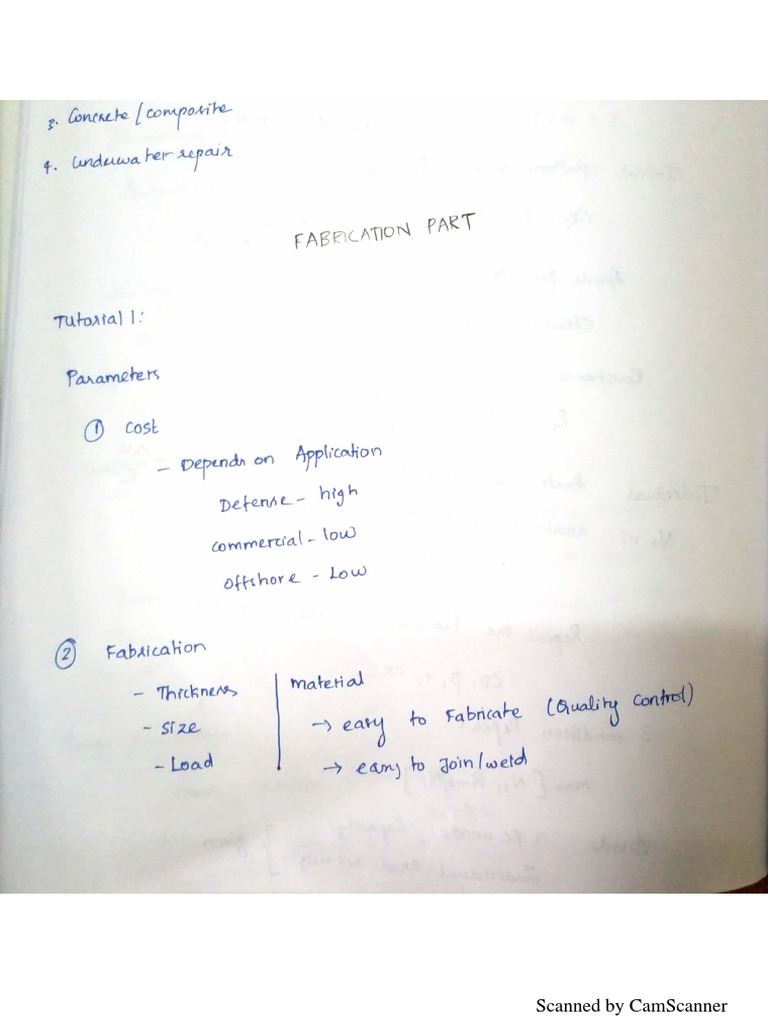 3. Concrete / composite
4. Underwater repair
FABRICATION PART
Tutorial 1:
Parameters
① Cost
- Depends on Application
Defense - high
Commercial - low
Offshore - Low
② Fabrication
- Thickness | Material
- Size → easy to Fabricate (Quality control)
- Load → easy to Join/weld
Scanned by CamScanner